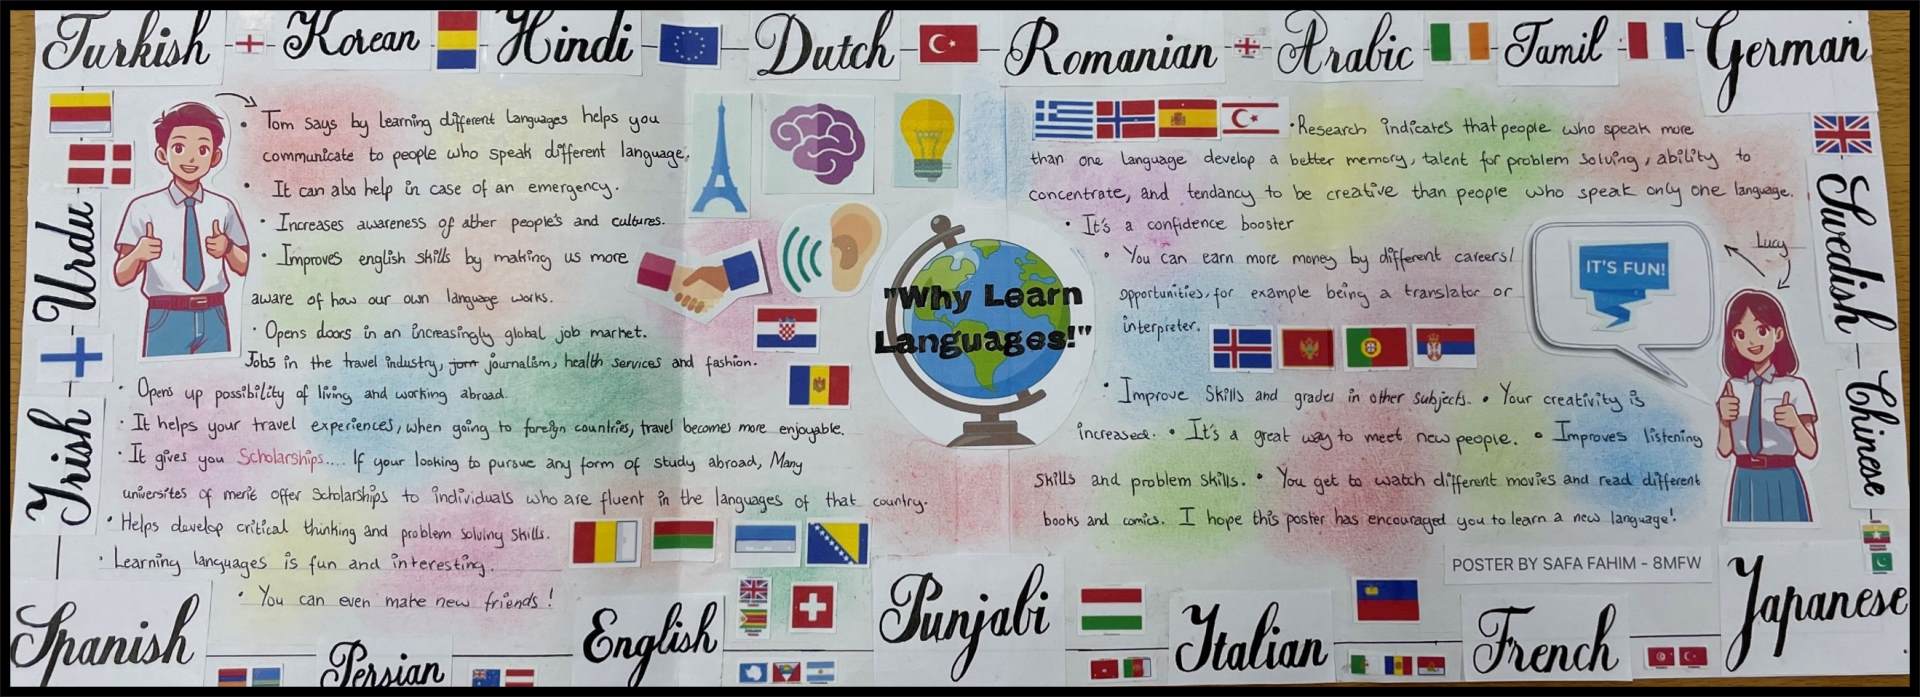 Turkish
Korean
Hindi
Dutch
Romanian
Arabic
Tamil
German
• Tom says by learning different languages helps you
communicate to people who speak different language.
• It can also help in case of an emergency.
• Increases awareness of other people's and cultures.
• Improves english skills by making us more
aware of how our own language works.
• Opens doors in an increasingly global job market.
Jobs in the travel industry, journalism, health services and fashion.
• Opens up possibility of living and working abroad.
• It helps your travel experiences, when going to foreign countries, travel becomes more enjoyable.
• It gives you Scholarships.... If your looking to pursue any form of study abroad, Many
universites of merit offer Scholarships to individuals who are fluent in the languages of that country.
• Helps develop critical thinking and problem solving skills.
• Learning languages is fun and interesting.
• You can even make new friends!
"Why Learn
Languages!"
• Research indicates that people who speak more
than one language develop a better memory, talent for problem solving, ability to
concentrate, and tendancy to be creative than people who speak only one language.
• It's a confidence booster
• You can earn more money by different careers/
opportunities, for example being a translator or
interpreter.
• Improve Skills and grades in other subjects. • Your creativity is
increased. • It's a great way to meet new people. • Improves listening
skills and problem skills. • You get to watch different movies and read different
books and comics. I hope this poster has encouraged you to learn a new language!
IT'S FUN!
Lucy
POSTER BY SAFA FAHIM - 8MFW
Urdu
Irish
Swedish
Chinese
Spanish
Persian
English
Punjabi
Italian
French
Japanese